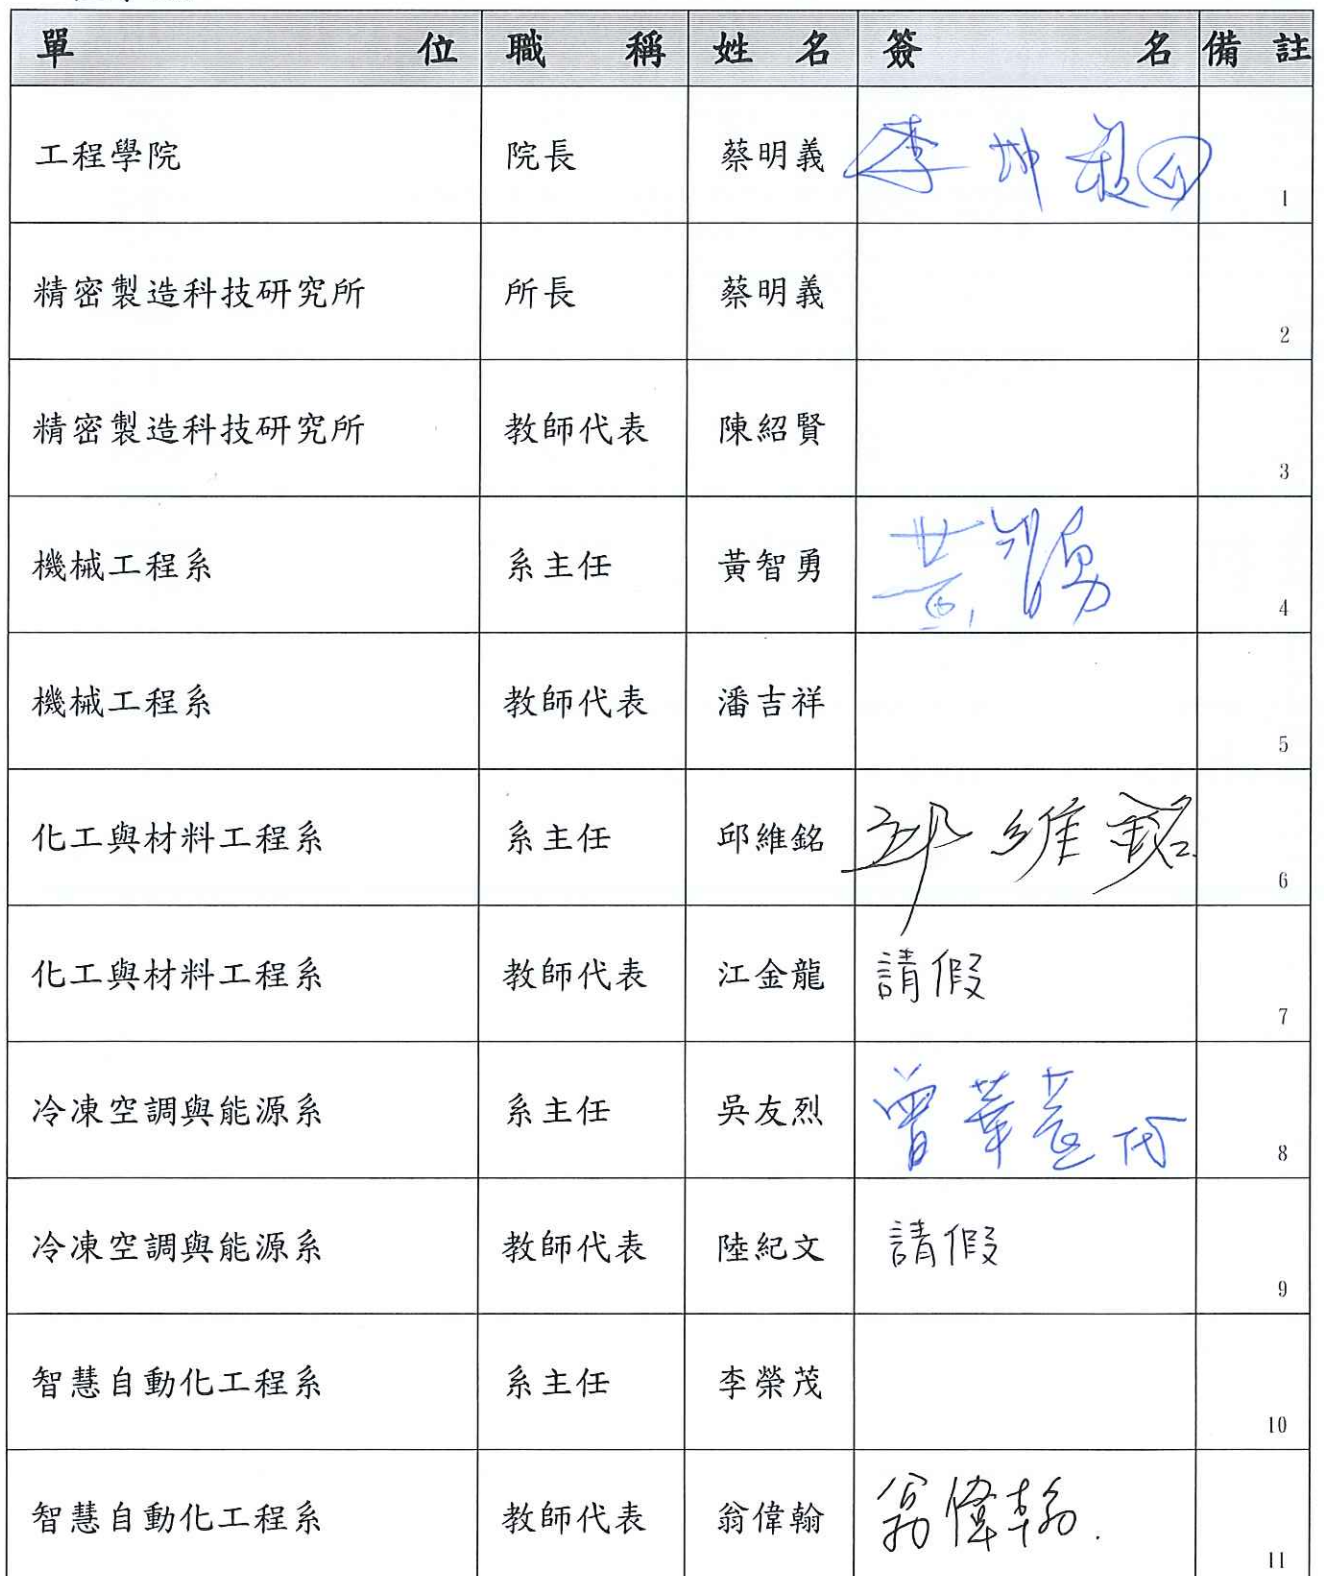 單位 職稱 姓名 簽名 備註
工程學院 院長 蔡明義 李坤 1
精密製造科技研究所 所長 蔡明義 2
精密製造科技研究所 教師代表 陳紹賢 3
機械工程系 系主任 黃智勇 黃智勇 4
機械工程系 教師代表 潘吉祥 5
化工與材料工程系 系主任 邱維銘 邱維銘 6
化工與材料工程系 教師代表 江金龍 請假 7
冷凍空調與能源系 系主任 吳友烈 曾華 代 8
冷凍空調與能源系 教師代表 陸紀文 請假 9
智慧自動化工程系 系主任 李榮茂 10
智慧自動化工程系 教師代表 翁偉翰 翁偉翰. 11